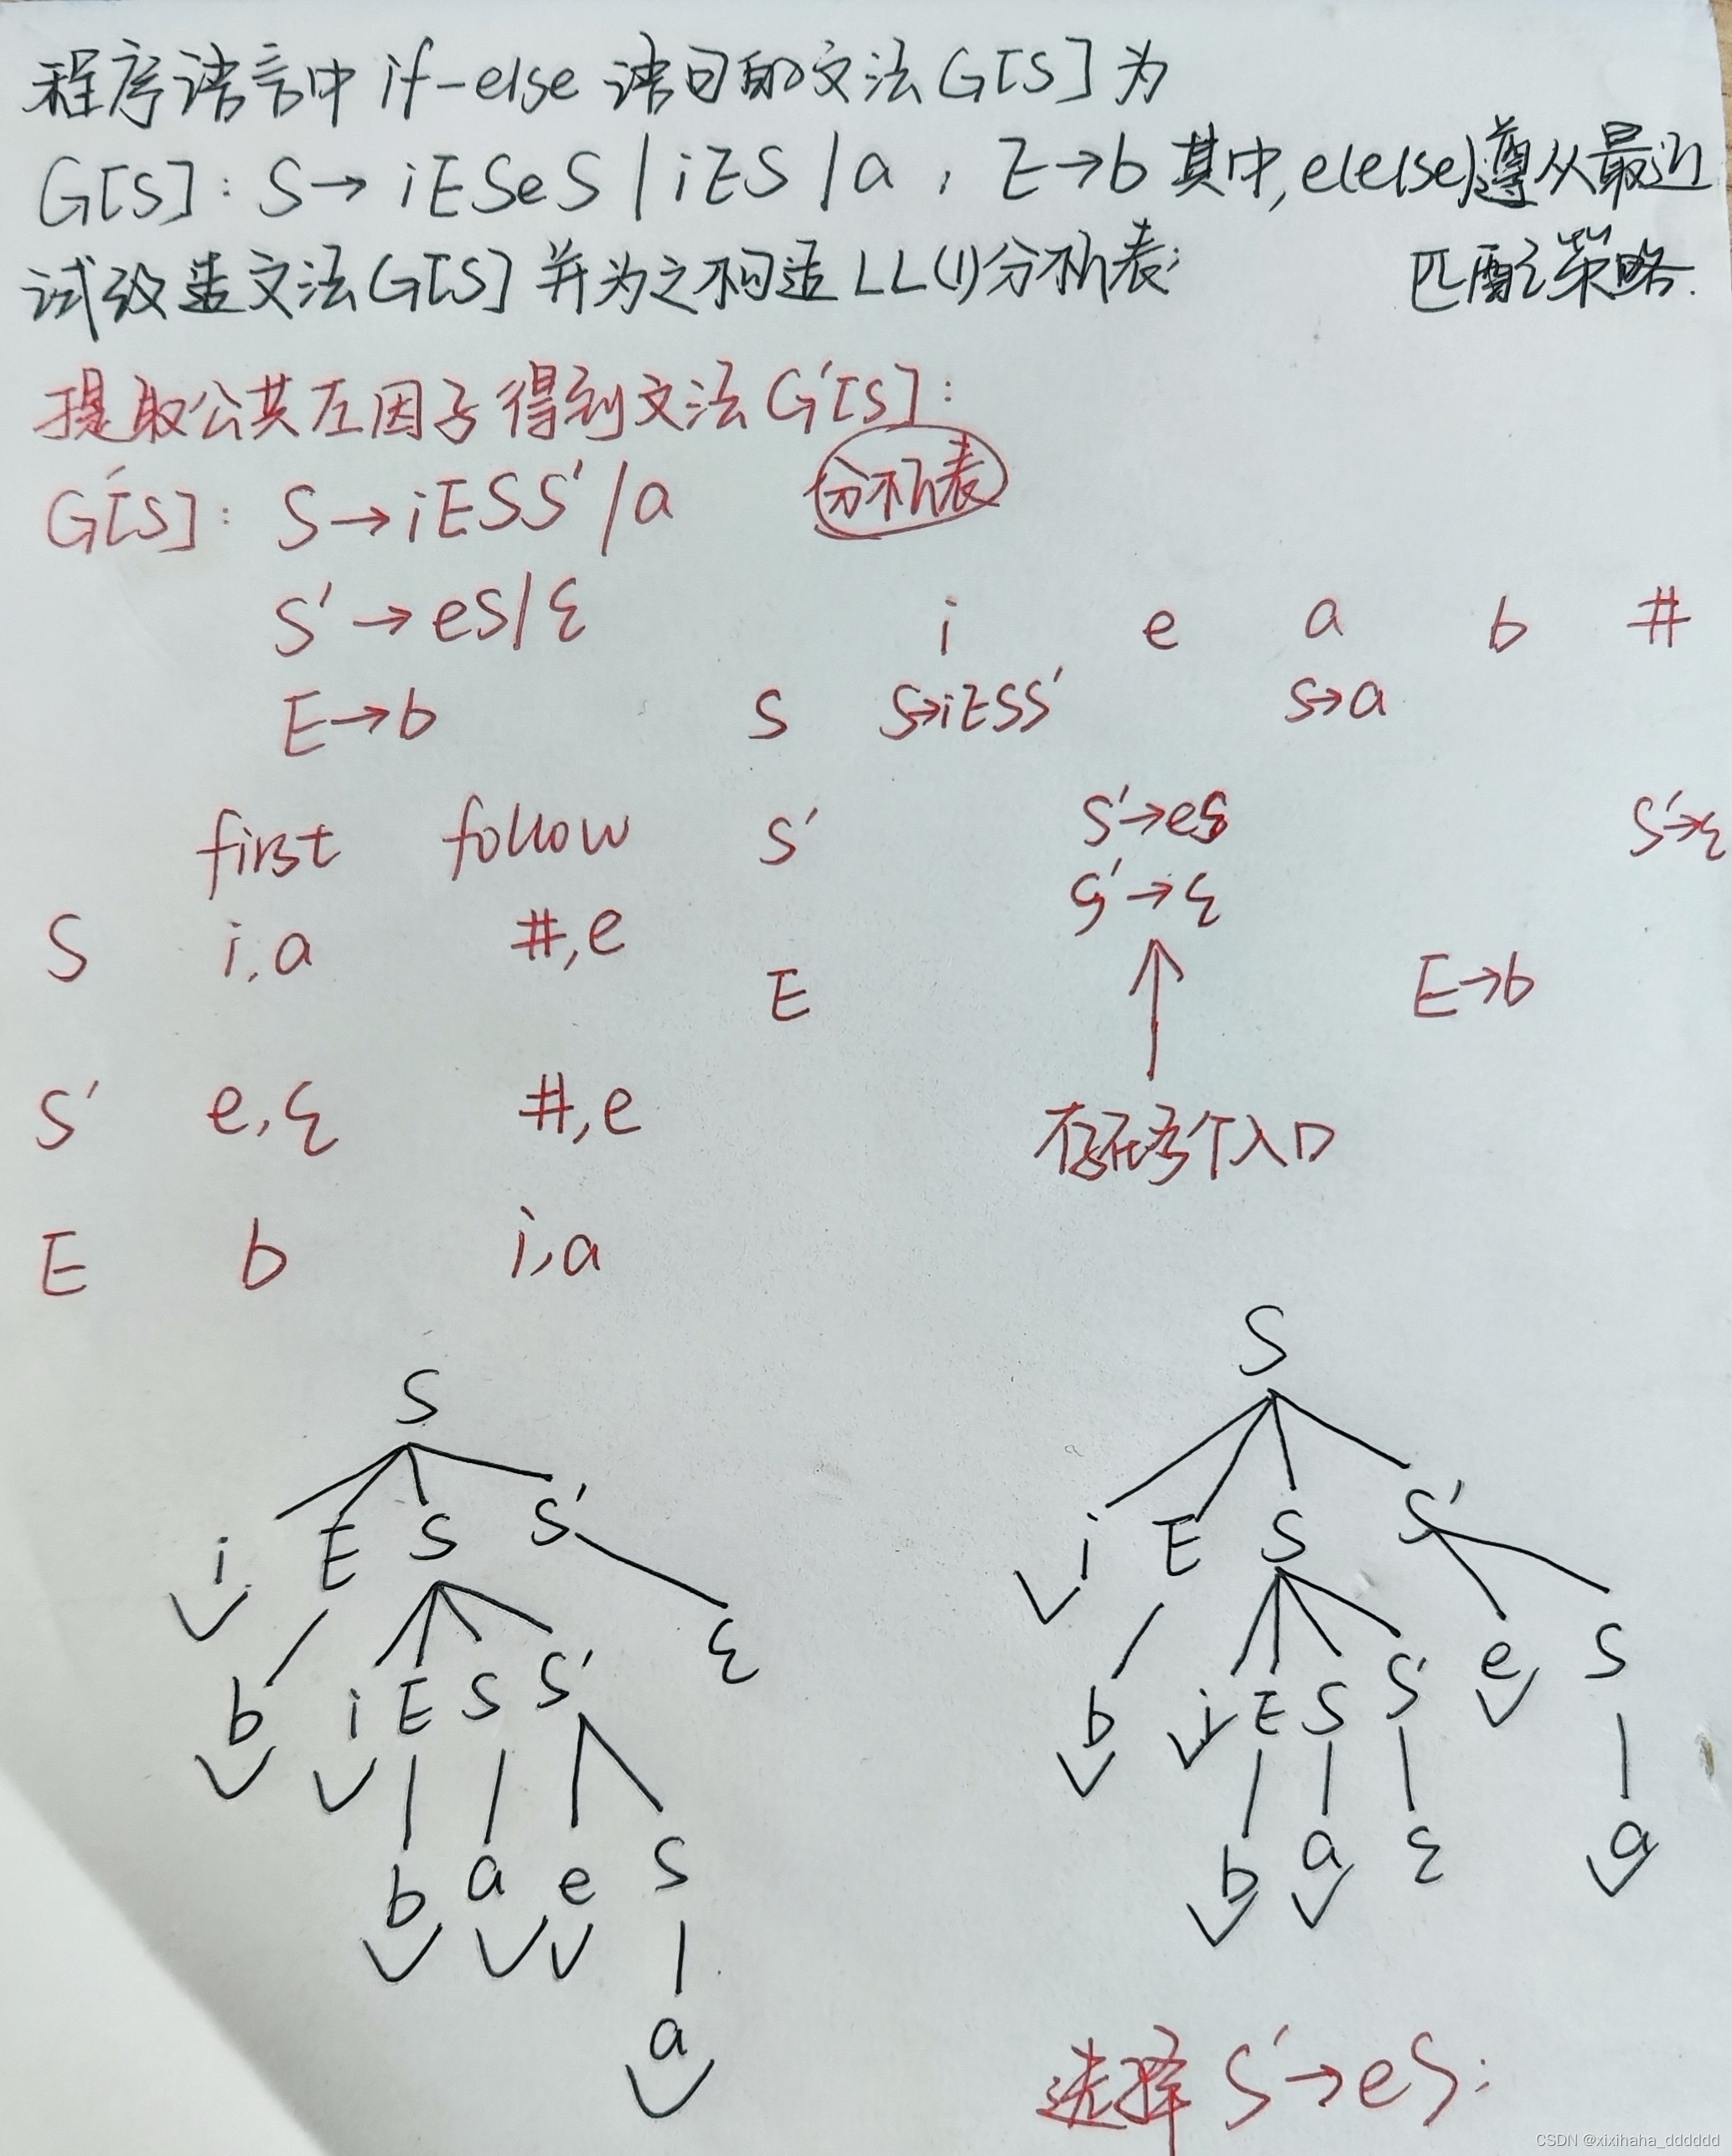 程序语言中 if-else 语句的文法G[S]为
G[S]: S→iESeS/iES/a, E→b 其中,e(else)遵从最近
匹配策略.
试改造文法G[S]并为之构造LL(1)分析表:
提取公共左因子得到文法G'[S]:
G'[S]: S→iESS'/a
S'→eS/ε
E→b
分析表
i e a b #
S S→iESS' S→a
S' S'→eS S'→ε
S'→ε
E E→b
存在多个入口
first follow
S i,a #,e
S' e,ε #,e
E b i,a
S
i E S S'
b i E S S' ε
b a e S
a
S
i E S S'
b i E S S' e S
b a ε a
选择 S'→eS:
CSDN @xixihaha_dddddd